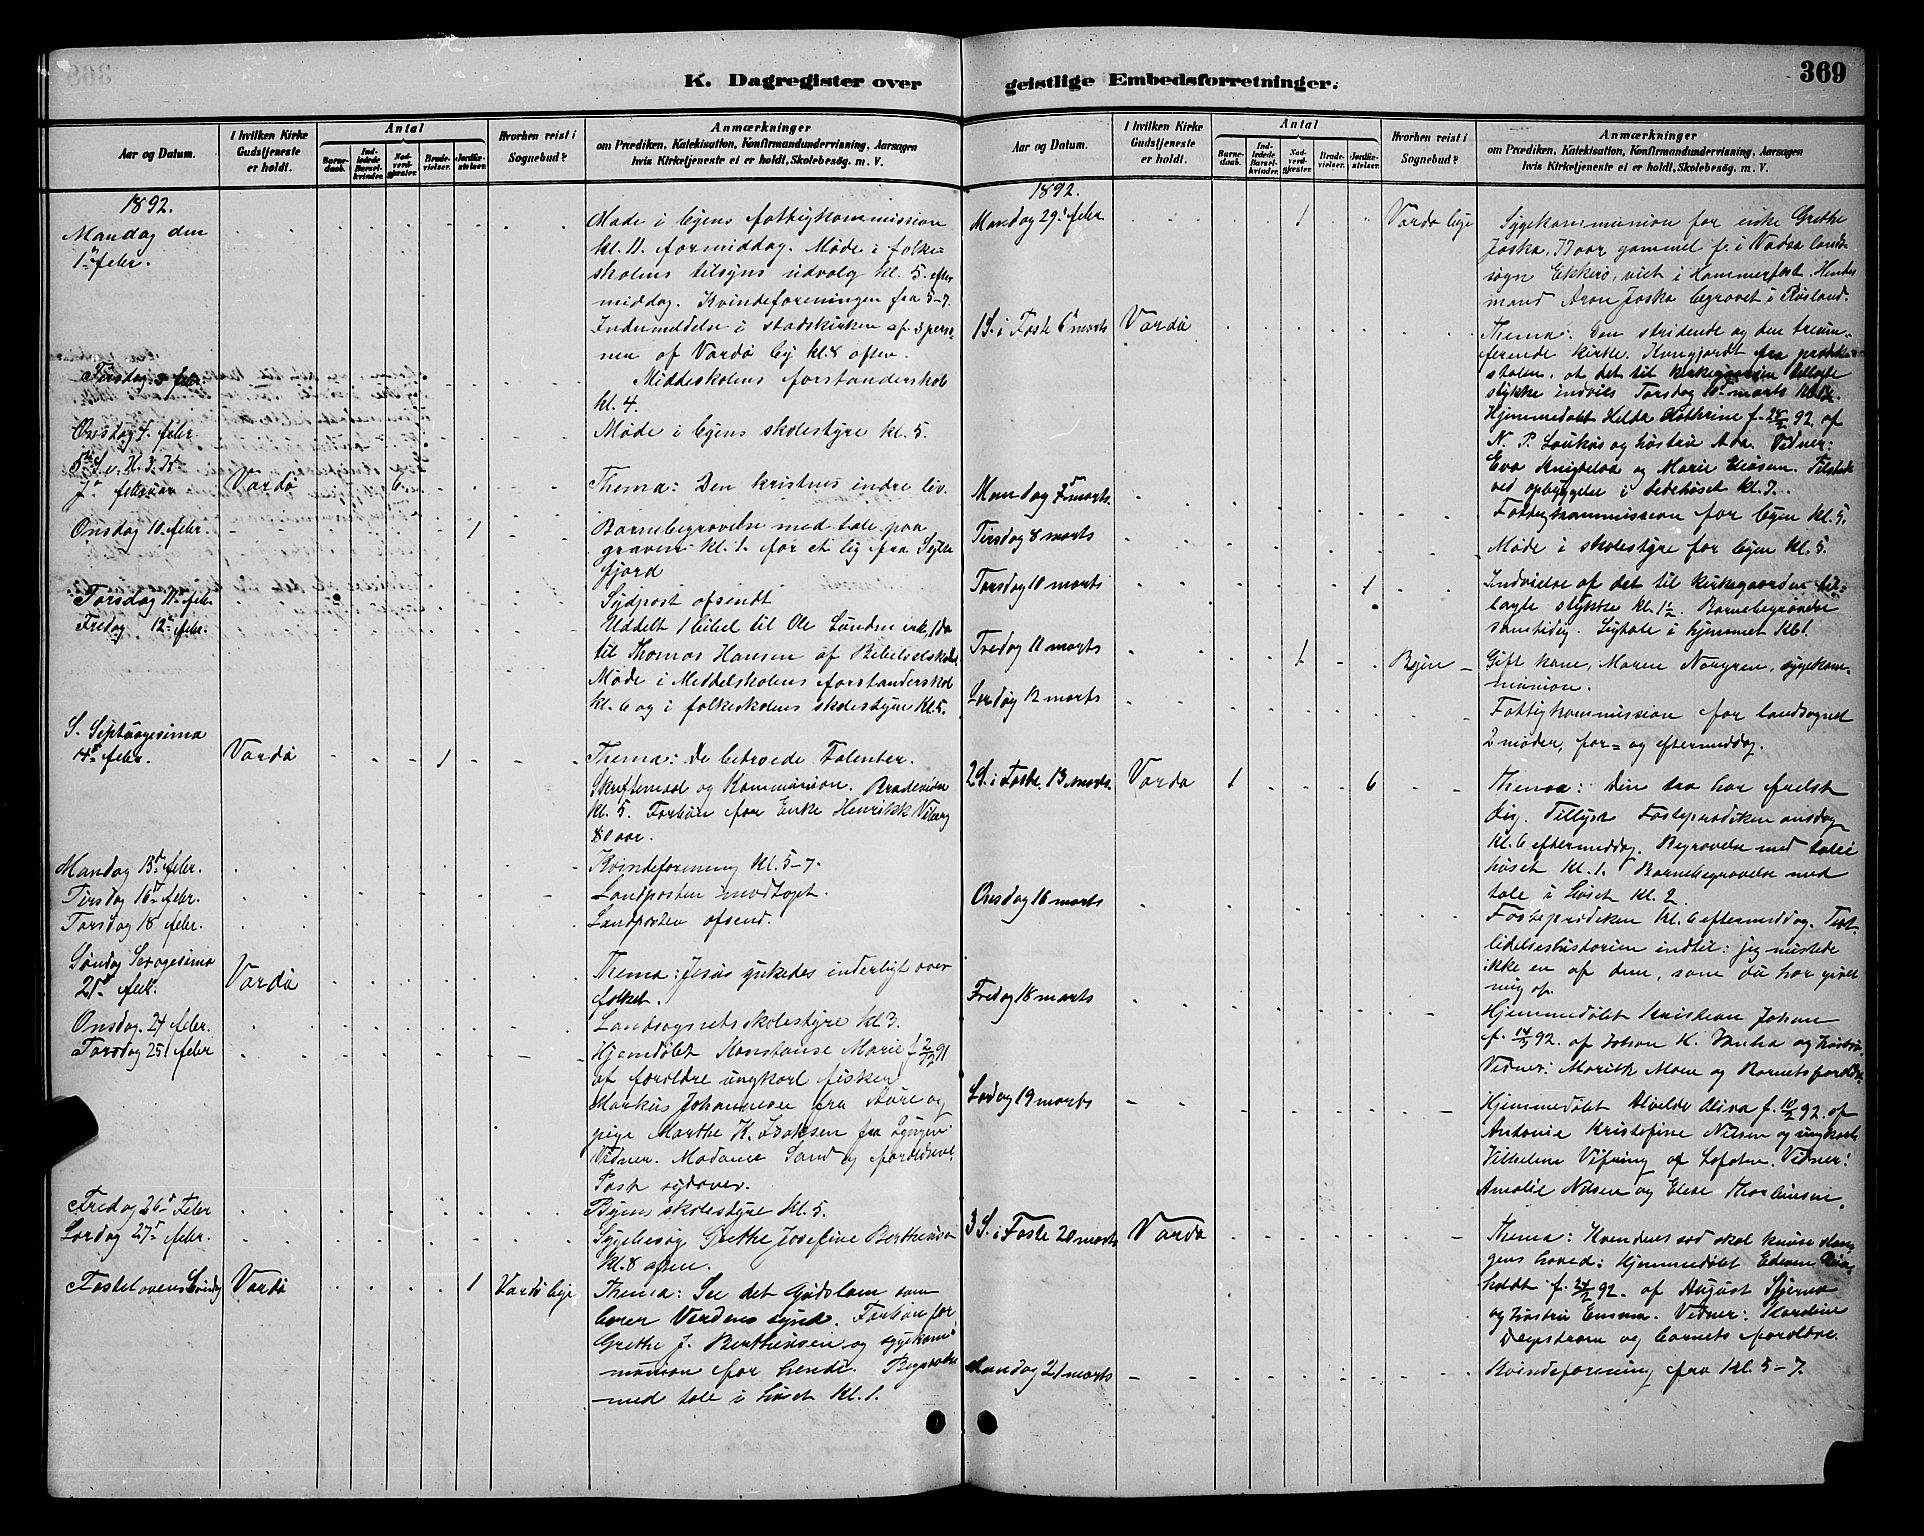 K. Dagregister over
Aar og Datum.
I hvilken Kirke Gudstjeneste er holdt.
Antal
Barnedaab.
Indledede Barselkvinder.
Nadverdgjæster.
Brudevielser.
Jordfæstelser.
Hvorhen reist i Sognebud?
Anmærkninger
om Prædiken, Katekisation, Konfirmandundervisning, Aarsagen
hvis Kirketjeneste ei er holdt, Skolebesøg. m. V.
1892.
Mandag den
1ste febr.
Møde i byens fattigkommission
kl. 11 formiddag. Møde i folke-
skolens tilsyns udvalg kl. 5 efter
middag. Kvindeforeningen fra 5-7.
Indmeldelse i statskirken af 3 perso-
ner af Vardø by kl. 8 aften.
Tirsdag febr.
Middelskolens forstanderskab
kl. 4.
Onsdag 4. febr.
Møde i byens skolestyre kl. 5.
5te S. e. H. 3. K.
7de februar Vardø 6.
Thema: Den kristnes indre liv.
Onsdag 10. febr. 1
Barnebegravelse med tale paa
graven kl. 1. for et lig fra Sylte
fjord
Torsdag 11te febr.
Sydpost afsendt
Fredag 12te febr.
Uddelt 1 bibel til Ole
til Thomas Hansen af Bibelselskabet.
Møde i Middelskolens forstanderskab
kl. 6 og i folkeskolens skolestyre kl. 5.
S. Septuagesima
14de febr. Vardø 1
Thema: De betroede Talenter.
Skriftemaal og Kommunion. Brudevielse
kl. 5. Forbøn for Enke Henrikk Viberg
80 aar.
Mandag 15de febr.
Kvindeforening kl. 5-7.
Tirsdag 16de febr.
Landposten modtaget.
Torsdag 18 febr.
Landposten afsend.
Søndag Sexagesima
21de febr. Vardø
Thema: Jesus ynkedes inderligt over
folket.
Onsdag. 24 febr.
Landsognets skolestyre kl. 3.
Torsdag 25 febr
Hjemdøbt Konstanse Marie f. 2/12 91
af forældre ungkarl fisker
Markus Johannesen fra Støre og
pige Marthe K. Isaksen fra Lyngen
Vidner. Madame Sand og forældrene.
Post sydover.
Fredag 26de Febr
Byens skolestyre kl. 5.
Lørdag 27de febr.
Sygebesøg Grethe Josefine Berthinsen
kl. 8 aften.
Fastelavens Søndag Vardø 1 Vardø bye
Thema: See det Guds lam som
bærer Verdens synd. Forbøn for
Grethe J. Berthinsen og sygekom-
munion for hende. Begravelse
med tale i huset kl. 1.
geistlige Embedsforretninger.
369
Aar og Datum.
I hvilken Kirke Gudstjeneste er holdt.
Antal
Barnedaab.
Indledede Barselkvinder.
Nadverdgjæster.
Brudevielser.
Jordfæstelser.
Hvorhen reist i Sognebud?
Anmærkninger
om Prædiken, Katekisation, Konfirmandundervisning, Aarsagen
hvis Kirketjeneste ei er holdt, Skolebesøg. m. V.
1892.
Mandag 29de febr. 1 Vardø bye
Sygekommunion for enke Grethe
Joska, 77 aar gammel f. i Vadsø lands
sogn Ekkerø, viet i Hammerfest. Hendes
mand Aron Joska begravet i Rusland.
1 S. i Faste 6te marts Vardø
Thema: Den stridende og den trium-
ferende kirke. Kungjordt fra prække-
stolen, at det til kirkegaarden tillagte
stykke indvies Torsdag 10de marts
Hjemmedøbt Hilda Kathrine f. 92. af
N. P. og hustru Ada. Vidner:
Eva og Marie Eliasen. Tilstede
ved opbyggelse i bedehuset kl. 7.
Mandag 7de marts.
Fattigkommission for byen kl. 5.
Tirsdag 8 marts
Møde i skolestyre for byen kl. 5.
Torsdag 10 marts 1
Indvielse af det til kirkegaarden til-
lagte stykke kl. 1½. Barnebegravelse
samtidig. Ligtale i hjemmet kl. 1.
Fredag 11 marts 1 Byen
Gift kone, Maren Norgren, sygekom-
munion.
Lørdag 12 marts
Fattigkommission for landsognet
2 møder, for- og eftermiddag.
2 S. i Faste 13 marts. Vardø 1 6
Thema: Din tro har frelst
dig. Tillyst Fasteprædiken onsdag
kl. 6 eftermiddag. Begravelse med tale i
huset kl. 1. Barnebegravelse med
tale i huset kl. 2.
Onsdag 16 marts
Fasteprædiken kl. 6 eftermiddag. Text
lidelseshistorien indtil: jeg mistede
ikke en af dem, som du har givet
mig af.
Fredag 18 marts
Hjemmedøbt Kristian Johan
f. 92. af Johan K. og hustru.
Vidner: Marith Mom og Barnets forældre.
Lørdag 19 marts
Hjemmedøbt Alvilde Alisa f. 92. af
Antonie Kristofine Nilsen og ungkarl
Vilhelm af Lofoten. Vidner:
Amalie Nilsen og Elise
3 S. i Faste 20 marts Vardø
Thema: Kvindens sæd skal knuse slan-
gens hoved. Hjemmedøbt Edevin Rein-
holdt f. 92. af August
og hustru Emma. Vidner:
og barnets forældre.
Mandag 21 marts
Kvindeforening fra kl. 5-7.